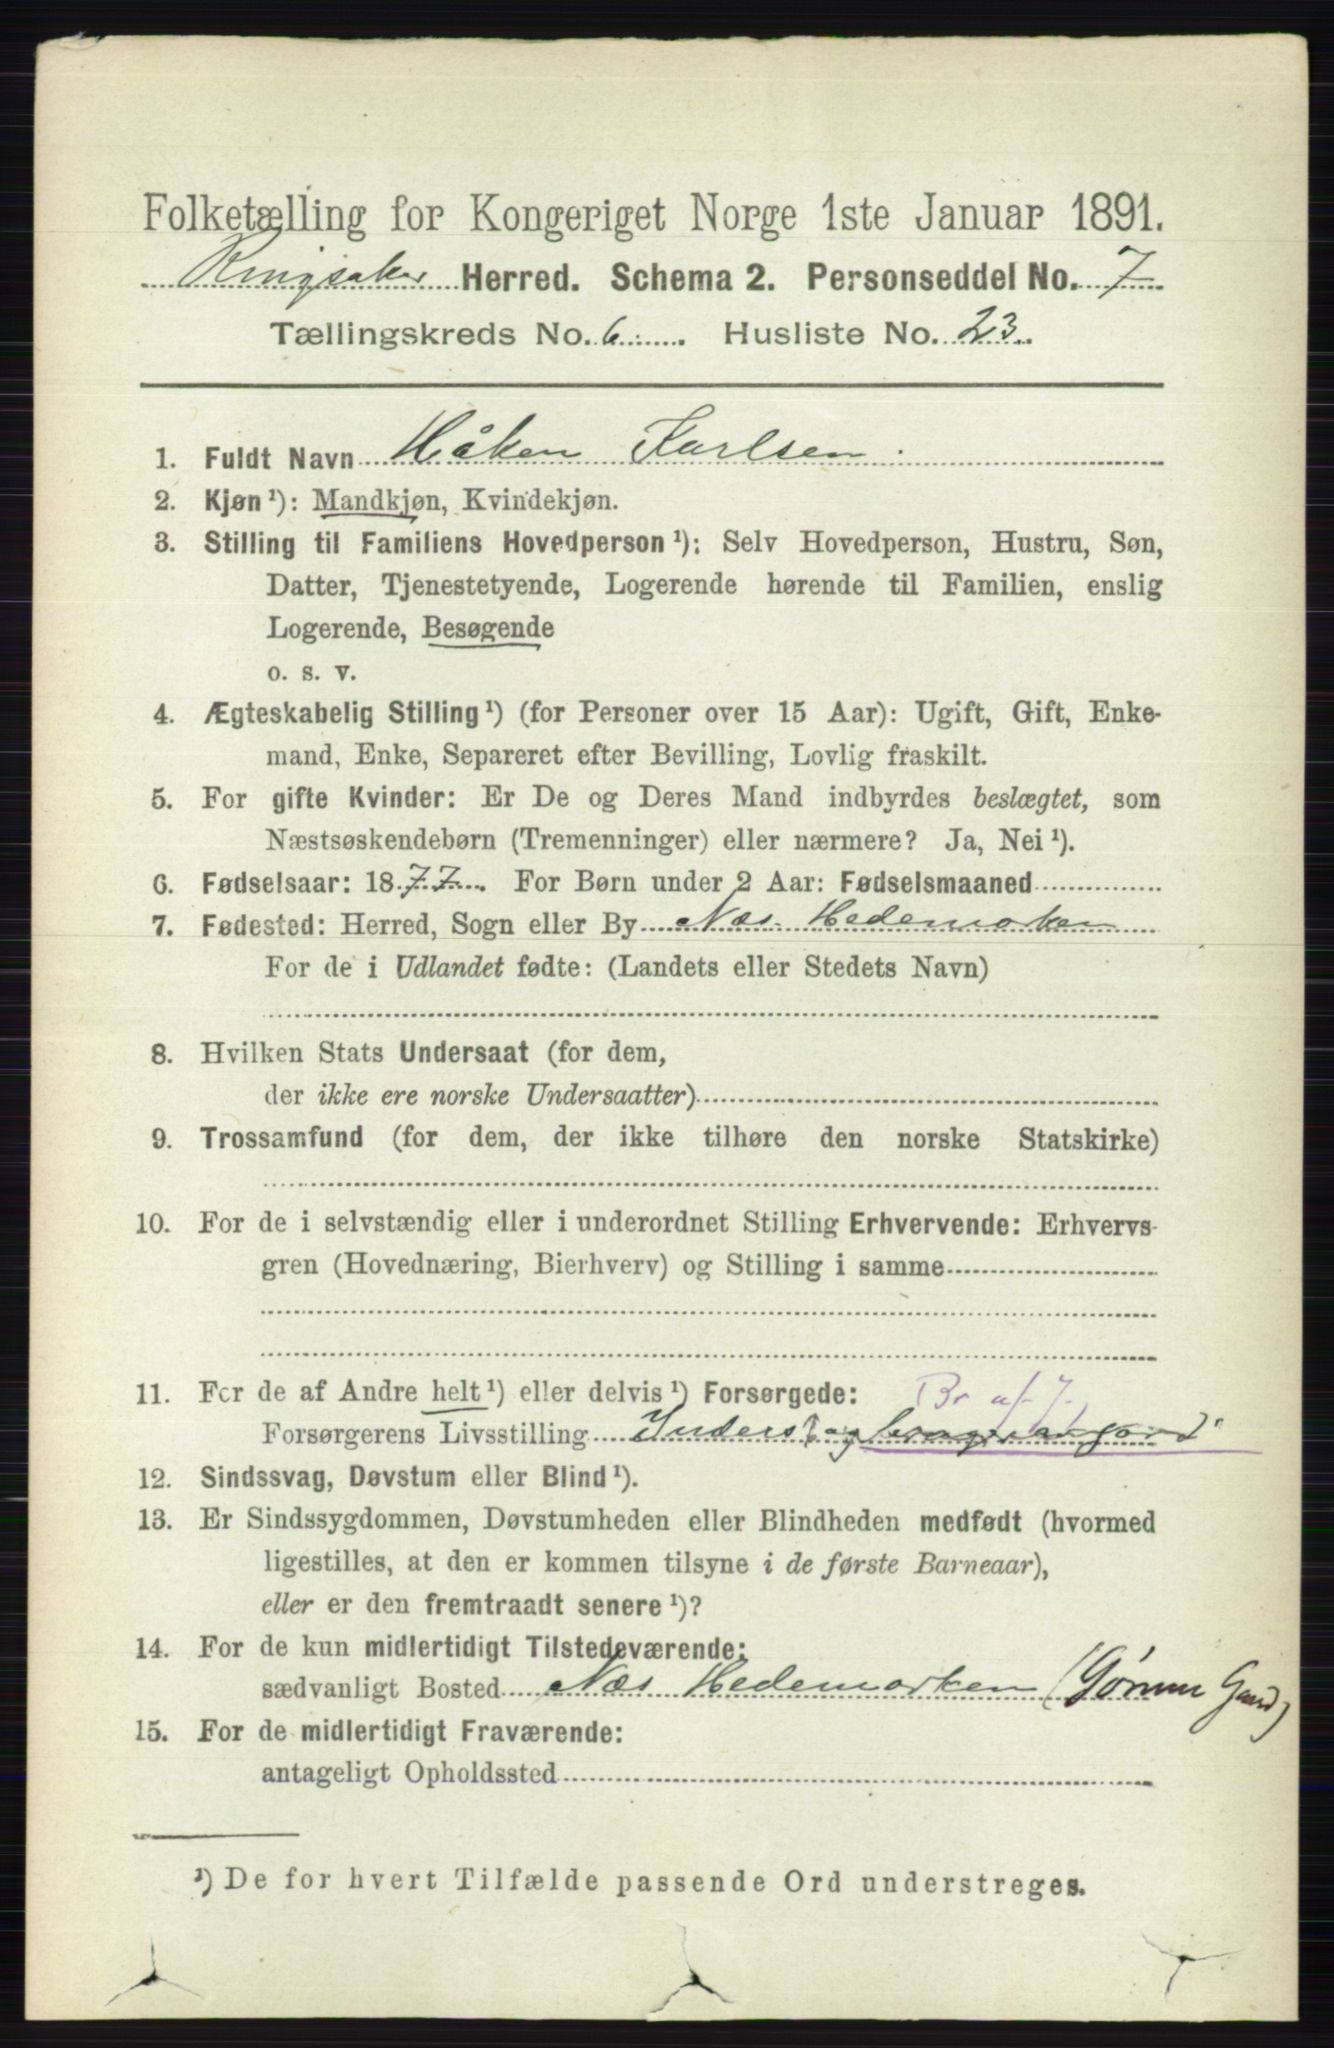 Folketælling for Kongeriget Norge 1ste Januar 1891.
Ringsaker Herred. Schema 2. Personseddel No. 7
Tællingskreds No. 6. Husliste No. 23.
1. Fuldt Navn Håken Karlsen.
2. Kjøn¹): Mandkjøn, Kvindekjøn.
3. Stilling til Familiens Hovedperson¹): Selv Hovedperson, Hustru, Søn,
Datter, Tjenestetyende, Logerende hørende til Familien, enslig
Logerende, Besøgende
o. s. v.
4. Ægteskabelig Stilling¹) (for Personer over 15 Aar): Ugift, Gift, Enke-
mand, Enke, Separeret efter Bevilling, Lovlig fraskilt.
5. For gifte Kvinder: Er De og Deres Mand indbyrdes beslægtet, som
Næstsøskendebørn (Tremenninger) eller nærmere? Ja, Nei¹).
6. Fødselsaar: 1877. For Børn under 2 Aar: Fødselsmaaned
7. Fødested: Herred, Sogn eller By Næs Hedemarken
For de i Udlandet fødte: (Landets eller Stedets Navn)
8. Hvilken Stats Undersaat (for dem,
der ikke ere norske Undersaatter)
9. Trossamfund (for dem, der ikke tilhøre den norske Statskirke)
10. For de i selvstændig eller i underordnet Stilling Erhvervende: Erhvervs-
gren (Hovednæring, Bierhverv) og Stilling i samme
11. For de af Andre helt¹) eller delvis¹) Forsørgede: Br af J.
Forsørgerens Livsstilling
12. Sindssvag, Døvstum eller Blind¹).
13. Er Sindssygdommen, Døvstumheden eller Blindheden medfødt (hvormed
ligestilles, at den er kommen tilsyne i de første Barneaar),
eller er den fremtraadt senere¹)?
14. For de kun midlertidigt Tilstedeværende:
sædvanligt Bosted Næs Hedemarken
15. For de midlertidigt Fraværende:
antageligt Opholdssted
¹) De for hvert Tilfælde passende Ord understreges.